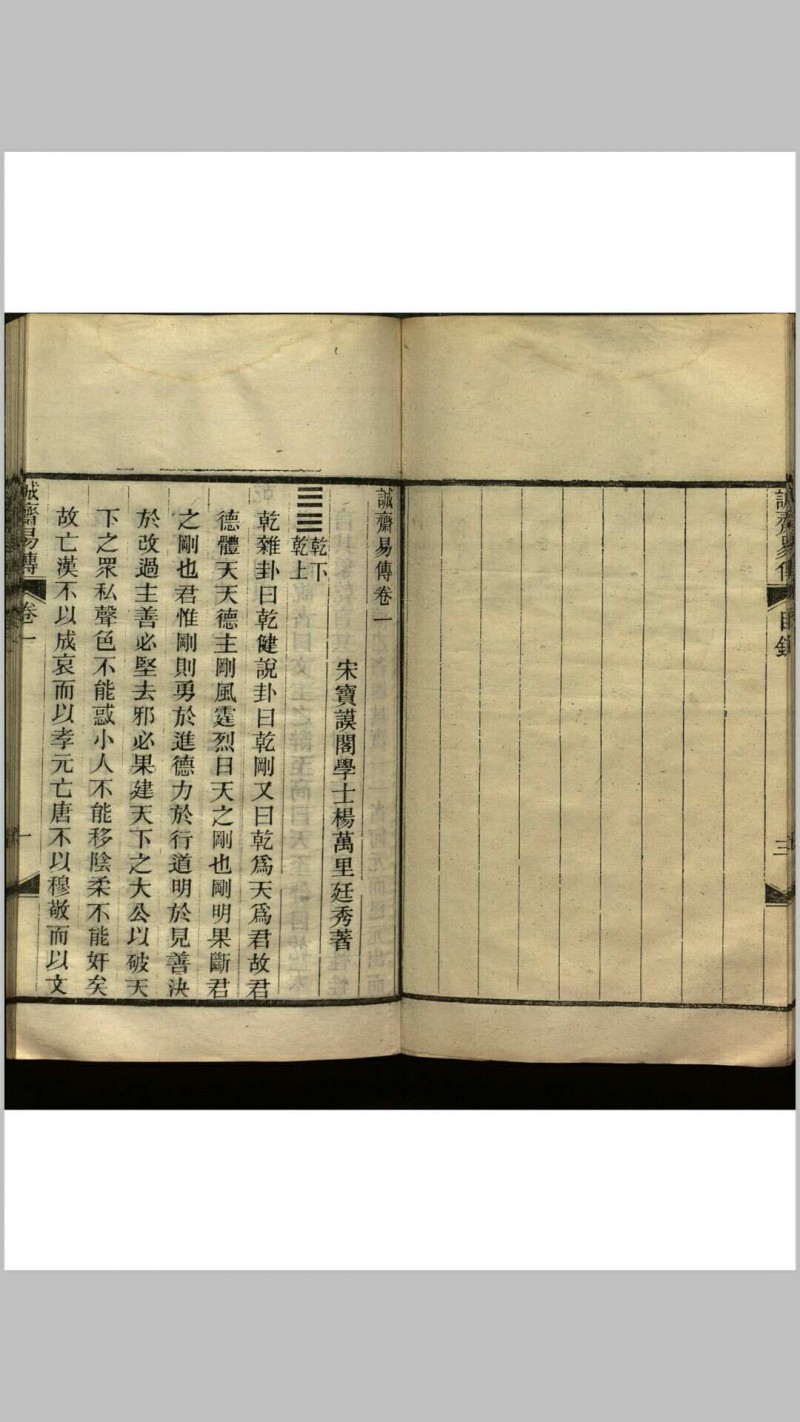 誠齋易傳
目錄
三
誠齋易傳卷一
宋寶謨閣學士楊萬里廷秀著
乾下
乾上
乾雜卦曰乾健說卦曰乾剛又曰乾爲天爲君故君
德體天天德主剛風霆烈日天之剛也剛明果斷君
之剛也君惟剛則勇於進德力於行道明於見善決
於改過主善必堅去邪必果建天下之大公以破天
下之眾私聲色不能惑小人不能移陰柔不能奸矣
故亡漢不以成哀而以孝元亡唐不以穆敬而以文
誠齋易傳
卷一
一